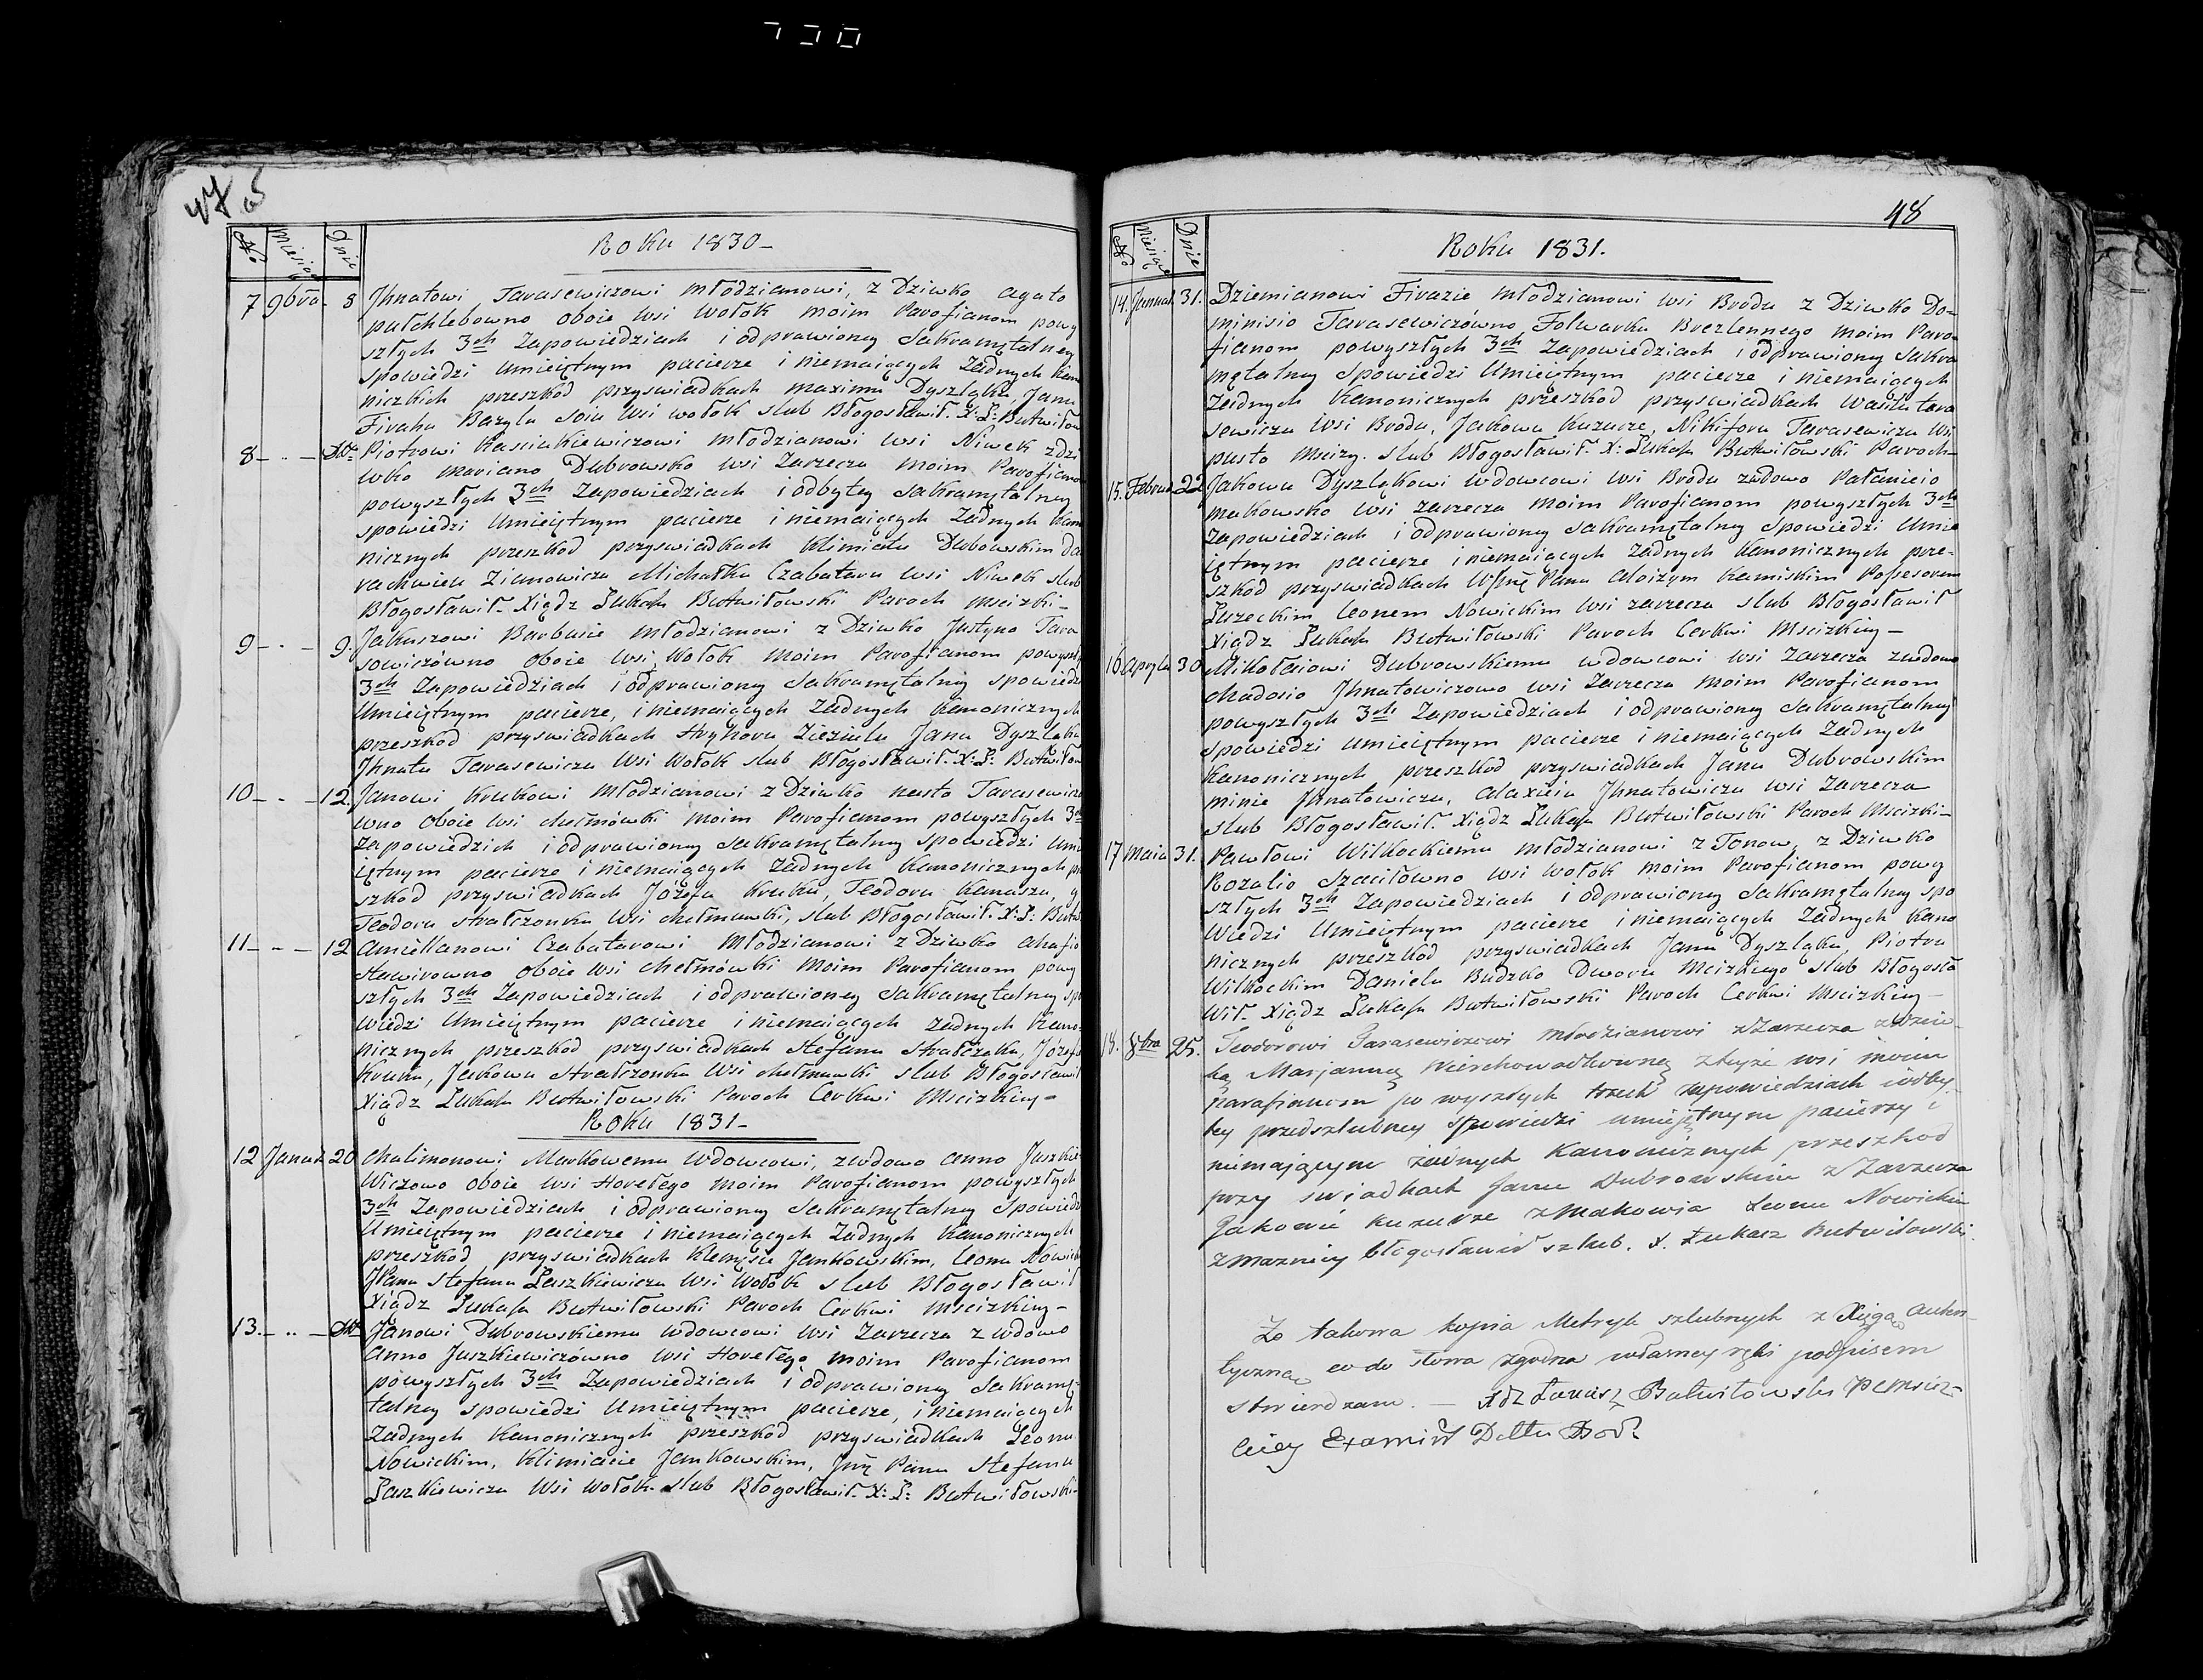 47
No Miesiąc Dnie
Roku 1830-
7 9bra 8 Jhnatowi Tarasewiczowi młodzianowi, z Dziwko agato
patchlebowno oboie wsi Wołok moim Parofianom powy
szłych 3ch Zapowiedziach i odprawioney Sakramętalney
spowiedzi umieiętnym pacierze i niemaiących Żadnych kano
niczkich przeszkod przyswiadkach maximu Dyszlaku, Janu
Firahu Bazylu Soiu wsi wołok slub Błogosławił. X: Ł: Butwiłow
8 - .. - Dto Piotrowi Kasciukiewiczowi młodzianowi wsi Niwek z dzi
wko mariano Dubrowsko wsi Zarzecza moim Parofianom
powyszłych 3ch Zapowiedziach i odbytey Sakramętalney
spowiedzi Umieiętnym pacierze i niemaiących Żadnych kano
nicznych przeszkod przyswiadkach klimiatu Dubowskim da
rachwieu Zianowiczu Michałku Czabataru wsi Niwek slub
Błogosławił Xiądz Łukasz Butwiłowski Paroch Mscizki-
9 - . - 9. Jakuszowi Barbasie młodzianowi z Dziwko Justyno Tara
sowiczówno oboie wsi Wołok moim Parofianom powyszły
3ch Zapowiedziach i odprawioney Sakramętalney spowiedzi
Umieiętnym pacierze, i niemaiących Żadnych kanonicznych
przeszkod przyswiadkach Hryhoru Zieziulu Janu Dyszlaku
Jhnatu Tarasewiczu wsi Wołok slub Błogosławił. X: Ł: Butwiłow
10 - . - 12. Janowi Krukowi młodzianowi z Dziwko nasto Tarasewiczo
wno oboie wsi chełmówki moim Parofianom powyszłych 3ch
Zapowiedzich i odprawioney Sakramętalney spowiedzi umie
iętnym pacierze i niemaiących Żadnych kanonicznych prze
szkod przyswiadkach Józefu Kruku, Teodoru kanaszu, y
Teodoru stralczonku wsi chełmuwki, slub Błogosławił. X: Ł: Butwi
11 - .. - 12 amiellanowi Czabatarowi młodzianowi z Dziwko ahafio
stawirowno oboie wsi chełmówki moim Parofianom powy
szłych 3ch Zapowiedziach i odprawioney Sakramętalney spo
wiedzi Umieiętnym pacierze i niemaiących Żadnych kano-
nicznych przeszkod przyswiadkach stefanu stralczuku, Józefu
Kruku, Jakowu stralczonku wsi chełmuwki slub Błogosławił
Xiądz Łukasz Butwiłowski Paroch Cerkwi Mscizkiey-
Roku 1831-
12 Januar 20 chalimonowi Markowemu wdowcowi, zwdowo anno Juszkie
wiczowo oboie wsi Horełego moim Parofianom powyszłych
3ch Zapowiedziach i odprawioney Sakramętalney Spowiedzi
Umieiętnym pacierze i niemaiących Żadnych kanonicznych
przeszkod przyswiadkach klemysie Jankowskim, Leonu Nowick
JPanu stefanu Łaszkiewiczu wsi Wołok slub Błogosławił
Xiądz Łukasz Butwiłowski Paroch Cerkwi Mscizkiey-
13. - .. - Dto Janowi Dubrowskiemu wdowcowi wsi Zarzecza z wdowo
Anno Juszkiewiczówno wsi Horełego moim Parofianom
powyszłych 3ch Zapowiedziach i odprawioney Sakramę-
talney spowiedzi Umieiętnym pacierze, i niemaiących
Żadnych kanonicznych przeszkod przyswiadkach Leonu
Nowickim, Klimiacie Jankowskim, Panu Stefanu
Łaszkiewiczu wsi Wołok slub Błogosławił. X: Ł: Butwiłowski-
48
No Miesiąc Dnie
Roku 1831.
14. Januar 31. Dziemianowi Firazie młodzianowi wsi Brodu z Dziwko Do-
minisio Tarasewiczówno Folwarku Brezlennego moim Paro-
fianom powyszłych 3ch Zapowiedziach i odprawioney Sakra
mętalney spowiedzi Umieiętnym pacierze i niemaiących
Żadnych kanonicznych przeszkod przyswiadkach Wasilu tara
sewiczu wsi Brodu, Jakowu kuzurze, Nikiforu Tarasewiczu wsi
pusto Msciży. slub Błogosławił. X: Łukasz Butwiłowski Paroch-
15. Februar 22 Jakowu Dyszlękowi wdowcowi wsi Brodu zwdowo Pałanieio
makowsko wsi zarzecza moim Parofianom powyszłych 3ch
Zapowiedziach i odprawioney Sakramętalney spowiedzi Umie
iętnym pacierze i niemaiących Żadnych kanonicznych prze-
szkod przyswiadkach Panu aloizym kamiskim Possesorem
Leonem Nowickim wsi zarzecza slub Błogosławił
Xiądz Łukasz Butwiłowski Paroch Cerkwi Mscizkiey-
16 apryla 30 Mikołaiowi Dubrowskiemu wdowcowi wsi Zarzecza zwdowo
chadosio Jhnatowiczowo wsi Zarzecza moim Parofianom
powyszłych 3ch Zapowiedziach i odprawioney Sakramętalney
spowiedzi umieiętnym pacierze i niemaiących Żadnych
Kanonicznych przeszkod przyswiadkach Janu Dubrowskim
minie Jhnatowiczu, alaxieiu Jhnatowiczu wsi Zarzecza
slub Błogosławił. Xiądz Łukasz Butwiłowski Paroch Mscizki-
17 maia 31. Pawłowi Wilkockiemu młodzianowi z Tonow, z Dziwko
Rozalio Szaciłowno wsi wołok moim Parofianom powy
szłych 3ch Zapowiedziach i odprawioney Sakramętalney spo
wiedzi Umieiętnym pacierze i niemaiących Żadnych kano
nicznych przeszkod przyswiadkach Janu Dyszlaku, Piotru
Wilkockim Danielu Budzko Dworu Mscizkiego slub Błogosła
wił. Xiądz Łukasz Butwiłowski Paroch Cerkwi Mscizkiey-
18. 8bra 25. Teodorowi Tarasewiczowi młodzianowi z Zarzecza z dziew-
ką Marjanną Wierchowodkowną z teyże wsi moim
parafianom po wyszłych trzech zapowiedziach i odby-
tey przedszlubney spowiedzi umiejętnym pacierzy i
niemającym żadnych Kanonicznych przeszkod
przy swiadkach Janu Dubrowskim z Zarzecza
Jakowie kuzurze z Makowia Leonu Nowickim
z Maznicy błogosławił szlub. X. Łukasz Butwiłowski.
Ze takowa kopia Metryk szlubnych z Xięgą auten-
tyczną co do słowa zgodna własney ręki podpisem
stwierdzam. - Xdz Łukasz Butwiłowski